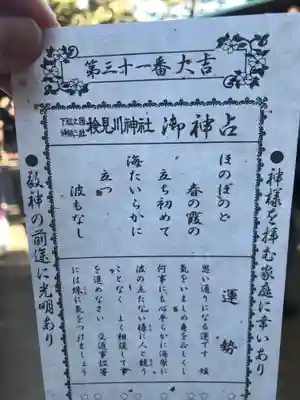 第三十一番大吉
下総之国
神祇三社
検見川神社 御神占
●神様を拝む家庭に幸いあり
ほのぼのと
春の霞の
立ち初めて
海たいらかに
立つ
波もなし
運勢
思い通りになる運です 短
気をいましめ身を正しくし
何事にも心やすらかに海原に
波の立たない様に人と競う
ことなく よく相談して事
を進めなさい 交通事故等
には殊に気をつけましょう
●敬神の前途に光明あり